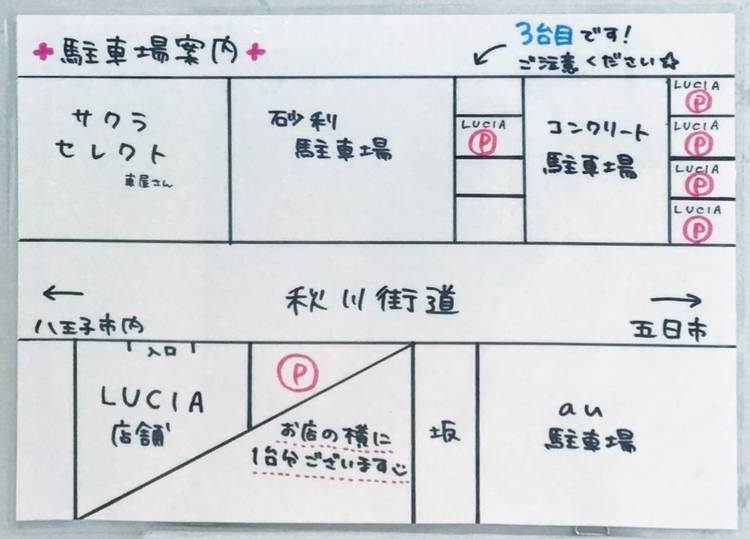 駐車場案内
3台目です!
ご注意ください☆
サクラ
セレクト
車屋さん
砂利
駐車場
LUCIA
P
コンクリート
駐車場
LUCIA
P
LUCIA
P
LUCIA
P
LUCIA
P
←
秋川街道
→
八王子市内
五日市
入口
LUCIA
店舗
P
お店の横に
1台分ございます
坂
au
駐車場